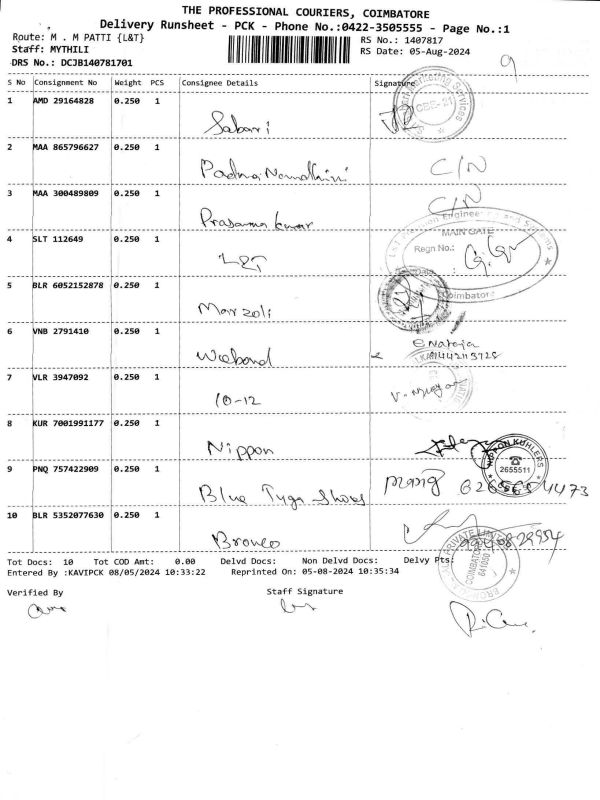 THE PROFESSIONAL COURIERS, COIMBATORE
Delivery Runsheet - PCK - Phone No.:0422-3505555 - Page No.:1
Route: M . M PATTI {L&T}
RS No.: 1407817
Staff: MYTHILI
RS Date: 05-Aug-2024
DRS No.: DCJB140781701
9
S No Consignment No Weight PCS Consignee Details Signature
1 AMD 29164828 0.250 1
Sabari
CBE-21
2 MAA 865796627 0.250 1
Padma Nandhini C/N
3 MAA 300489809 0.250 1
Prasanna kumar C/N
4 SLT 112649 0.250 1
L&T
L&T Precision Engineering and Systems
MAIN GATE
Regn No.:
Date
Coimbatore
5 BLR 6052152878 0.250 1
Marzoli
6 VNB 2791410 0.250 1
7 VLR 3947092 0.250 1
10-12
8 KUR 7001991177 0.250 1
Nippon
NIPPON KUHLERS
2655511
9 PNQ 757422909 0.250 1
Blue Tyga Shoes
10 BLR 5352077630 0.250 1
Bronco
PRIVATE LIMITED
COIMBATORE
641050
Tot Docs: 10 Tot COD Amt: 0.00 Delvd Docs: Non Delvd Docs: Delvy Pts:
Entered By :KAVIPCK 08/05/2024 10:33:22 Reprinted On: 05-08-2024 10:35:34
Verified By Staff Signature